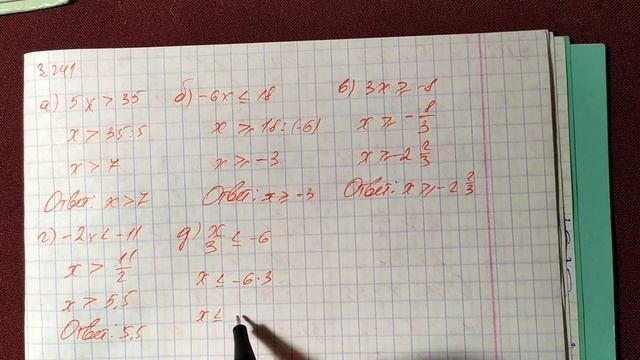 3.241
а) 5x > 35
x > 35:5
x > 7
Ответ: x > 7
б) -6x ≤ 18
x ≥ 18:(-6)
x ≥ -3
Ответ: x ≥ -3
в) 3x ≥ -8
x ≥ -8/3
x ≥ -2 2/3
Ответ: x ≥ -2 2/3
г) -2x < -11
x > 11/2
x > 5,5
Ответ: 5,5
д) x/3 ≤ -6
x ≤ -6·3
x ≤